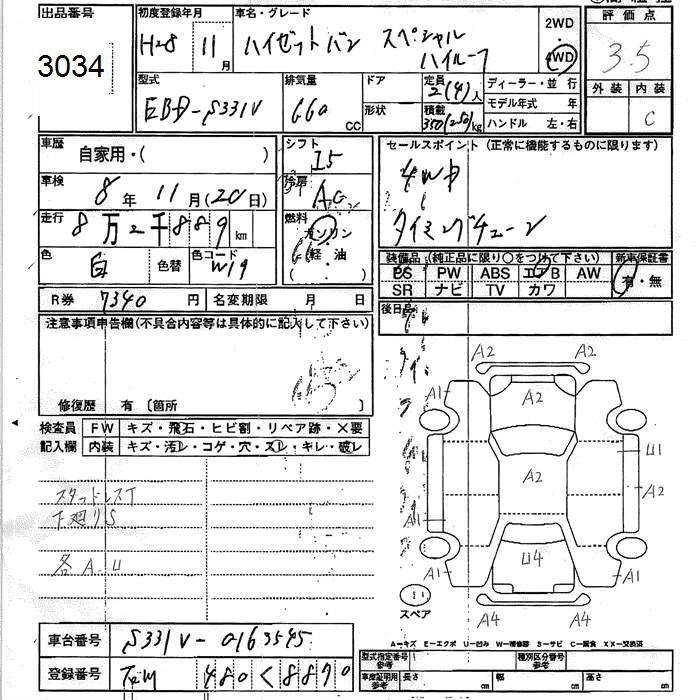 出品番号
3034
初度登録年月
H28 11月
車名・グレード
ハイゼットバン スペシャル
ハイルーフ
2WD
・
4WD
評価点
3.5
外装 内装
C
型式
EBD-S331V
排気量
660 cc
ドア
形状
定員
2(4)人
積載
350(250)kg
ディーラー・並 行
モデル年式 年
ハンドル 左・右
車歴
自家用・( )
シフト
I5
セールスポイント (正常に機能するものに限ります)
4WD
タイミングチェーン
車検
8年 11月(20日)
冷房
AC
走行
8万2千889km
燃料
ガソリン
軽 油
色
白
色替
色コード
W19
R券 7340 円
名変期限 月 日
装備品 (純正品に限り○をつけて下さい)
新車保証書
PS PW ABS エアB AW
SR ナビ TV カワ
有・無
後日品
注意事項申告欄(不具合内容等は具体的に記入して下さい)
修復歴 有 〔箇所 〕
検査員
記入欄
FW キズ・飛石・ヒビ割・リペア跡・×要
内装 キズ・汚レ・コゲ・穴・スレ・キレ・破レ
スタッドレスT
下廻りS
各A.U
A2 A2
A1 A2 A1
U1
A2 A2
A1
U4
A1 A1
スペア
A4 A4
A-キズ E-エクボ U-凹み W-補修跡 S-サビ C-腐食 XX-交換済
車台番号 S331V-0163545
登録番号 480 く 8870
型式指定番号
参考
種別区分番号
参考
車庫証明用
参考
長さ cm 幅 cm 高さ cm